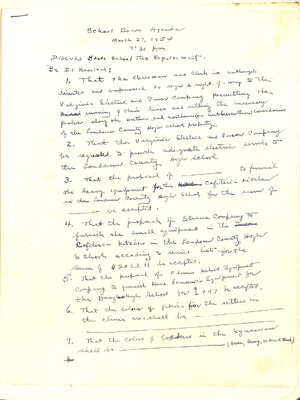 School Board Agenda
March 27, 1954
7:30 pm
Discuss State School Tax Requirement.
Be It Resolved:
1. That the Chairman and Clerk is authorized
directed and empowered to sign a right of way to the
Virginia Electric and Power Company permitting the
moving of their lines and setting the necessary
poles along the western and northern boundaries
of the Loudoun County High School property.
2. That the Virginia Electric and Power Company
be requested to provide adequate electric service to
the Loudoun County High School.
3. That the proposal of to furnish
the heavy equipment for the Cafeteria kitchen
in the Loudoun County High School for the sum of
be accepted.
4. That the proposal of Straus Company to
furnish the small equipment in the
Cafeteria kitchen in the Loudoun County High
School according to revised list for the
sum of be accepted.
5. That the proposal of School Equipment
Company to furnish Home Economics Equipment for
the Douglas High School for $ be accepted.
6. That the color of fabric for the settees in
the clinic area shall be
7. That the color of lockers in the gymnasium
shall be
(Green, Gray, or Red)